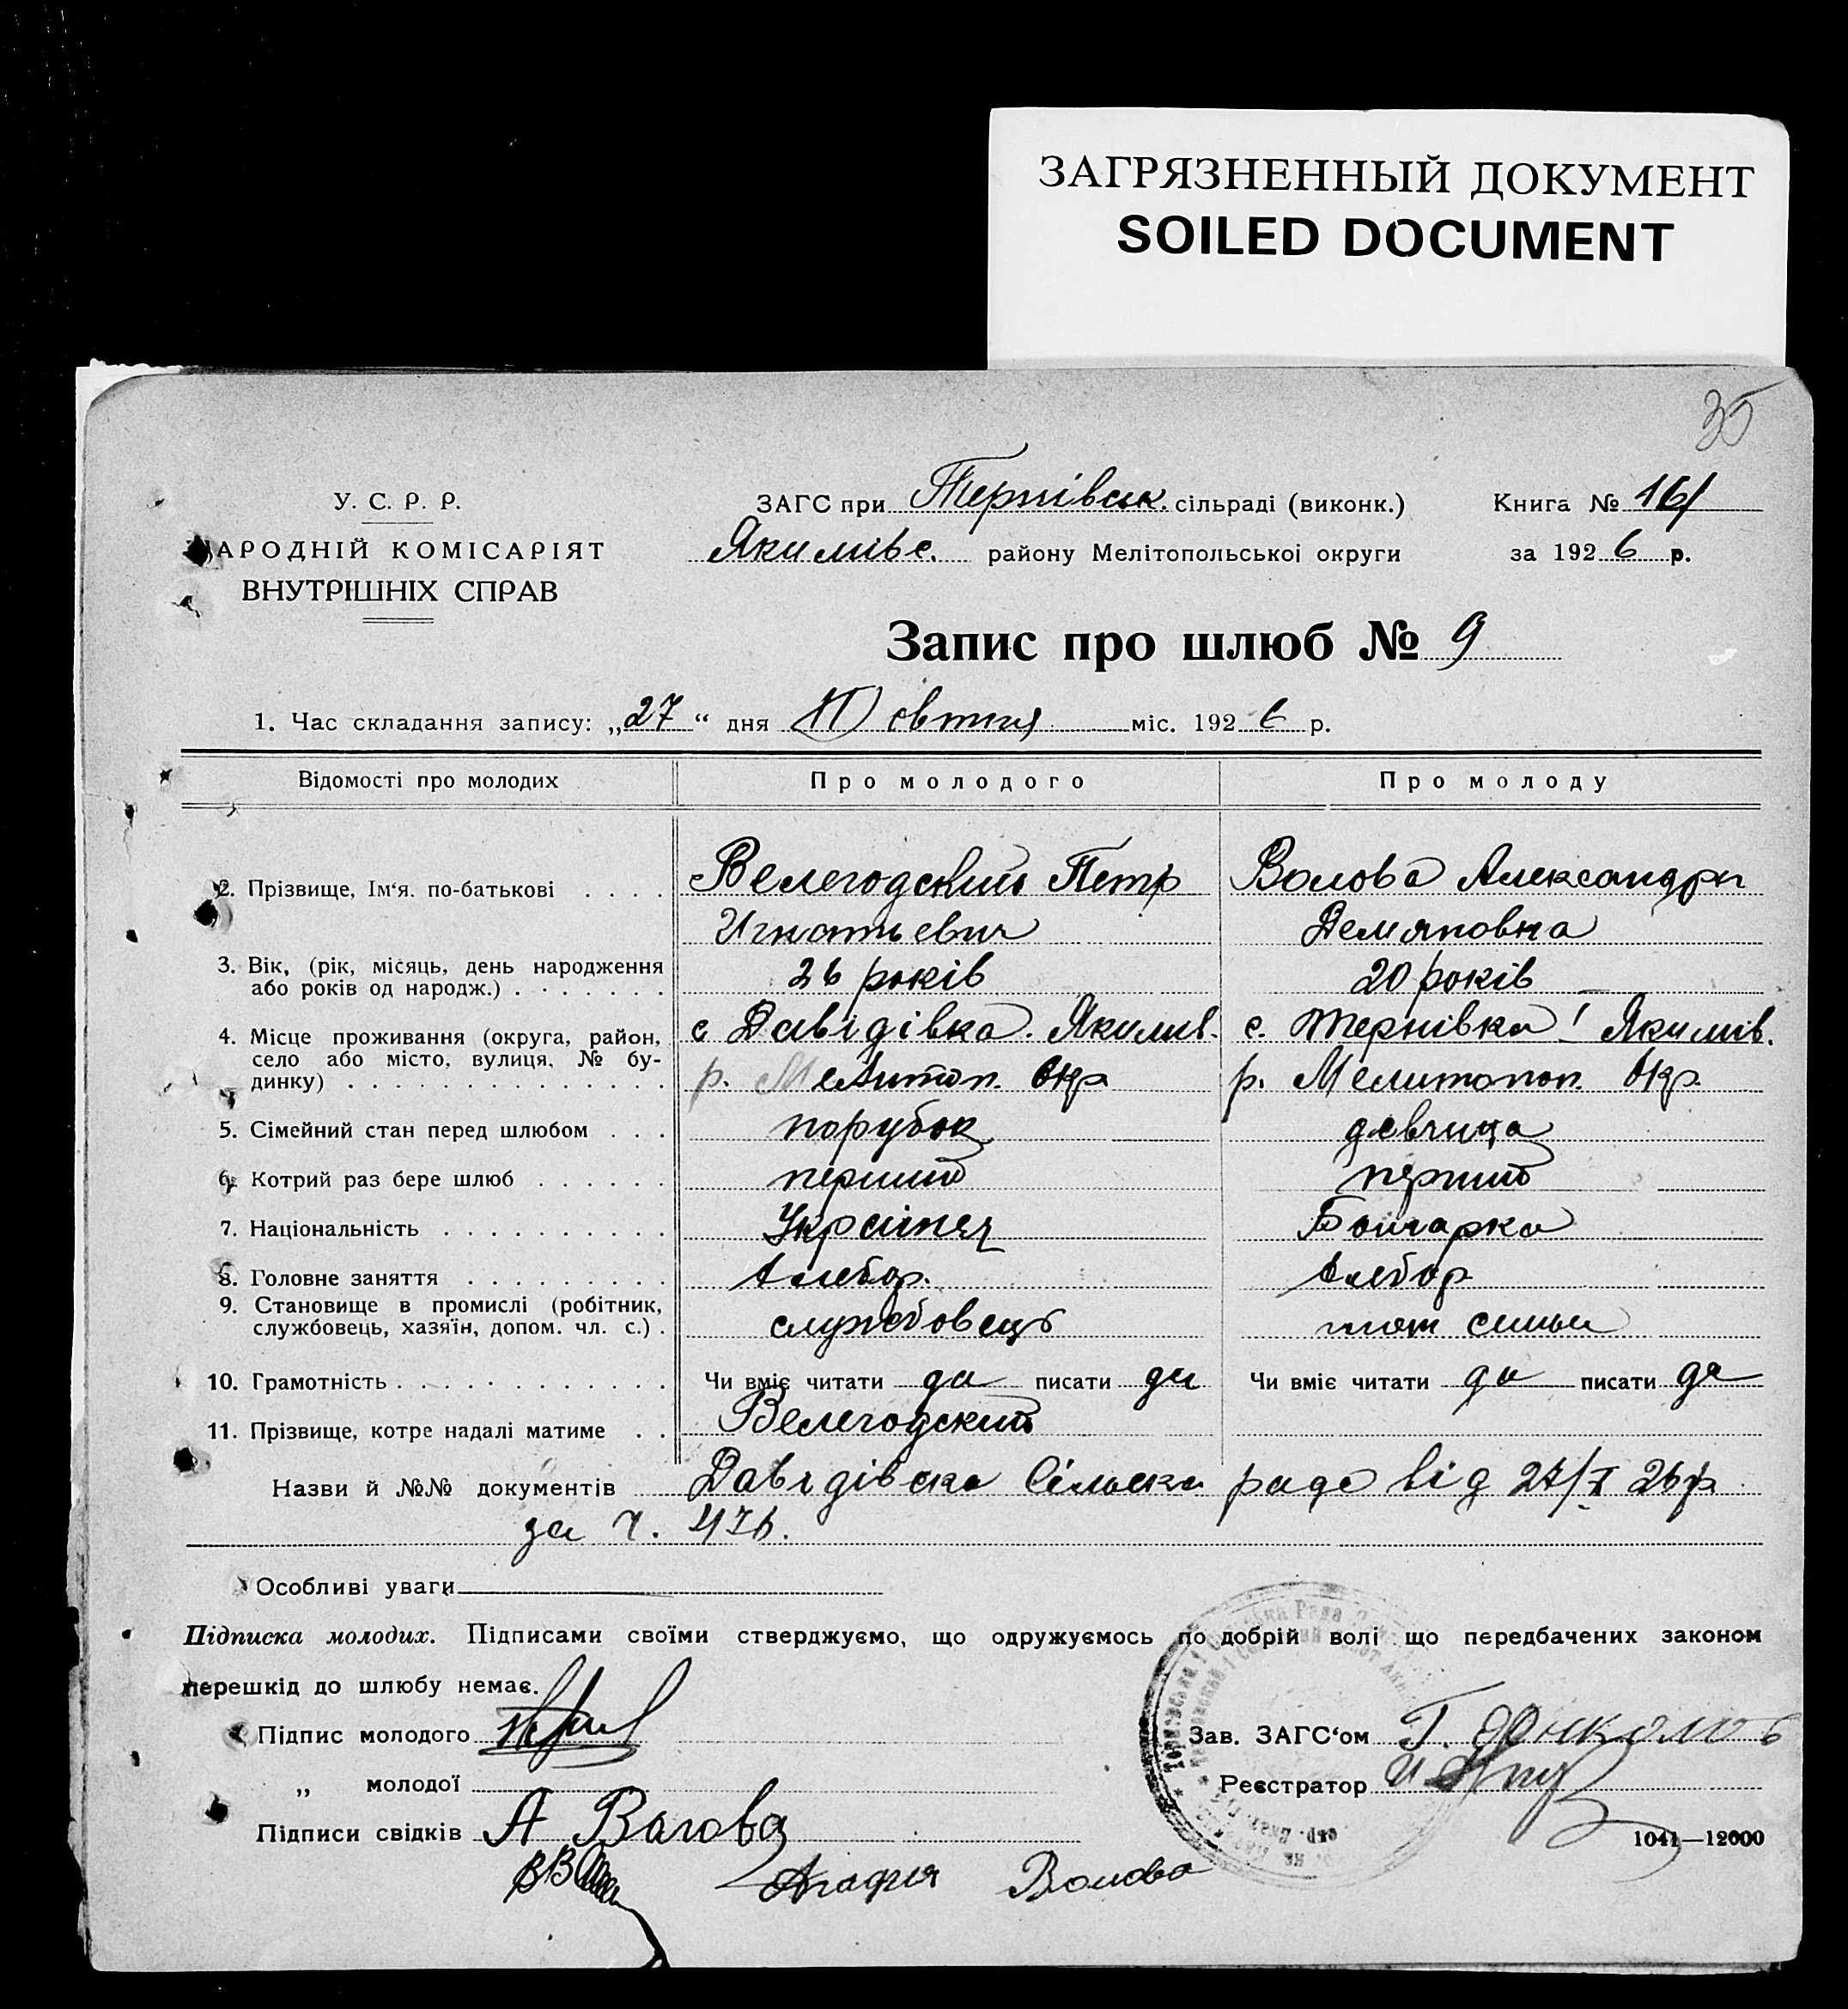 ЗАГРЯЗНЕННЫЙ ДОКУМЕНТ
SOILED DOCUMENT
35
У. С. Р. Р.
НАРОДНІЙ КОМІСАРІЯТ
ВНУТРІШНІХ СПРАВ
ЗАГС при Тернівськ. сільраді (виконк.)
Якимівс. району Мелітопольської округи
Книга № 161
за 1926 р.
Запис про шлюб № 9
1. Час складання запису: „27“ дня Жовтня міс. 1926 р.
Відомості про молодих Про молодого Про молоду
2. Прізвище, Ім'я. по-батькові . . . . Велегодский Петр Волова Александра
Игнатьевич Демяновна
3. Вік, (рік, місяць, день народження або років од народж.) . . . . . . . 26 років 20 років
4. Місце проживання (округа, район, село або місто, вулиця, № будинку) . . . . . . . . . . . . . . с Давідівка. Якимів. с. Тернівка Якимів.
р. Мелитоп. Окр р. Мелитопол. Окр.
5. Сімейний стан перед шлюбом . . . порубок девчица
6. Котрий раз бере шлюб . . . . . . перший перший
7. Національність . . . . . . . . . . Українец Болгарка
8. Головне заняття . . . . . . . . . хлебор. хлебор
9. Становище в промислі (робітник, службовець, хазяїн, допом. чл. с.) . службовець член симьи
10. Грамотність . . . . . . . . . . . . Чи вміє читати да писати да Чи вміє читати да писати да
11. Прізвище, котре надалі матиме . . Велегодский
Назви й №№ документів Давидівска Сільска рада від 27/X 26 р.
за ч. 476.
Особливі уваги
Підписка молодих. Підписами своїми стверджуємо, що одружуємось по добрій волі що передбачених законом
перешкід до шлюбу немає.
Підпис молодого
„ молодої
Підписи свідків А Валова
Агафия Волова
Зав. ЗАГС'ом
Реєстратор
1041—12000